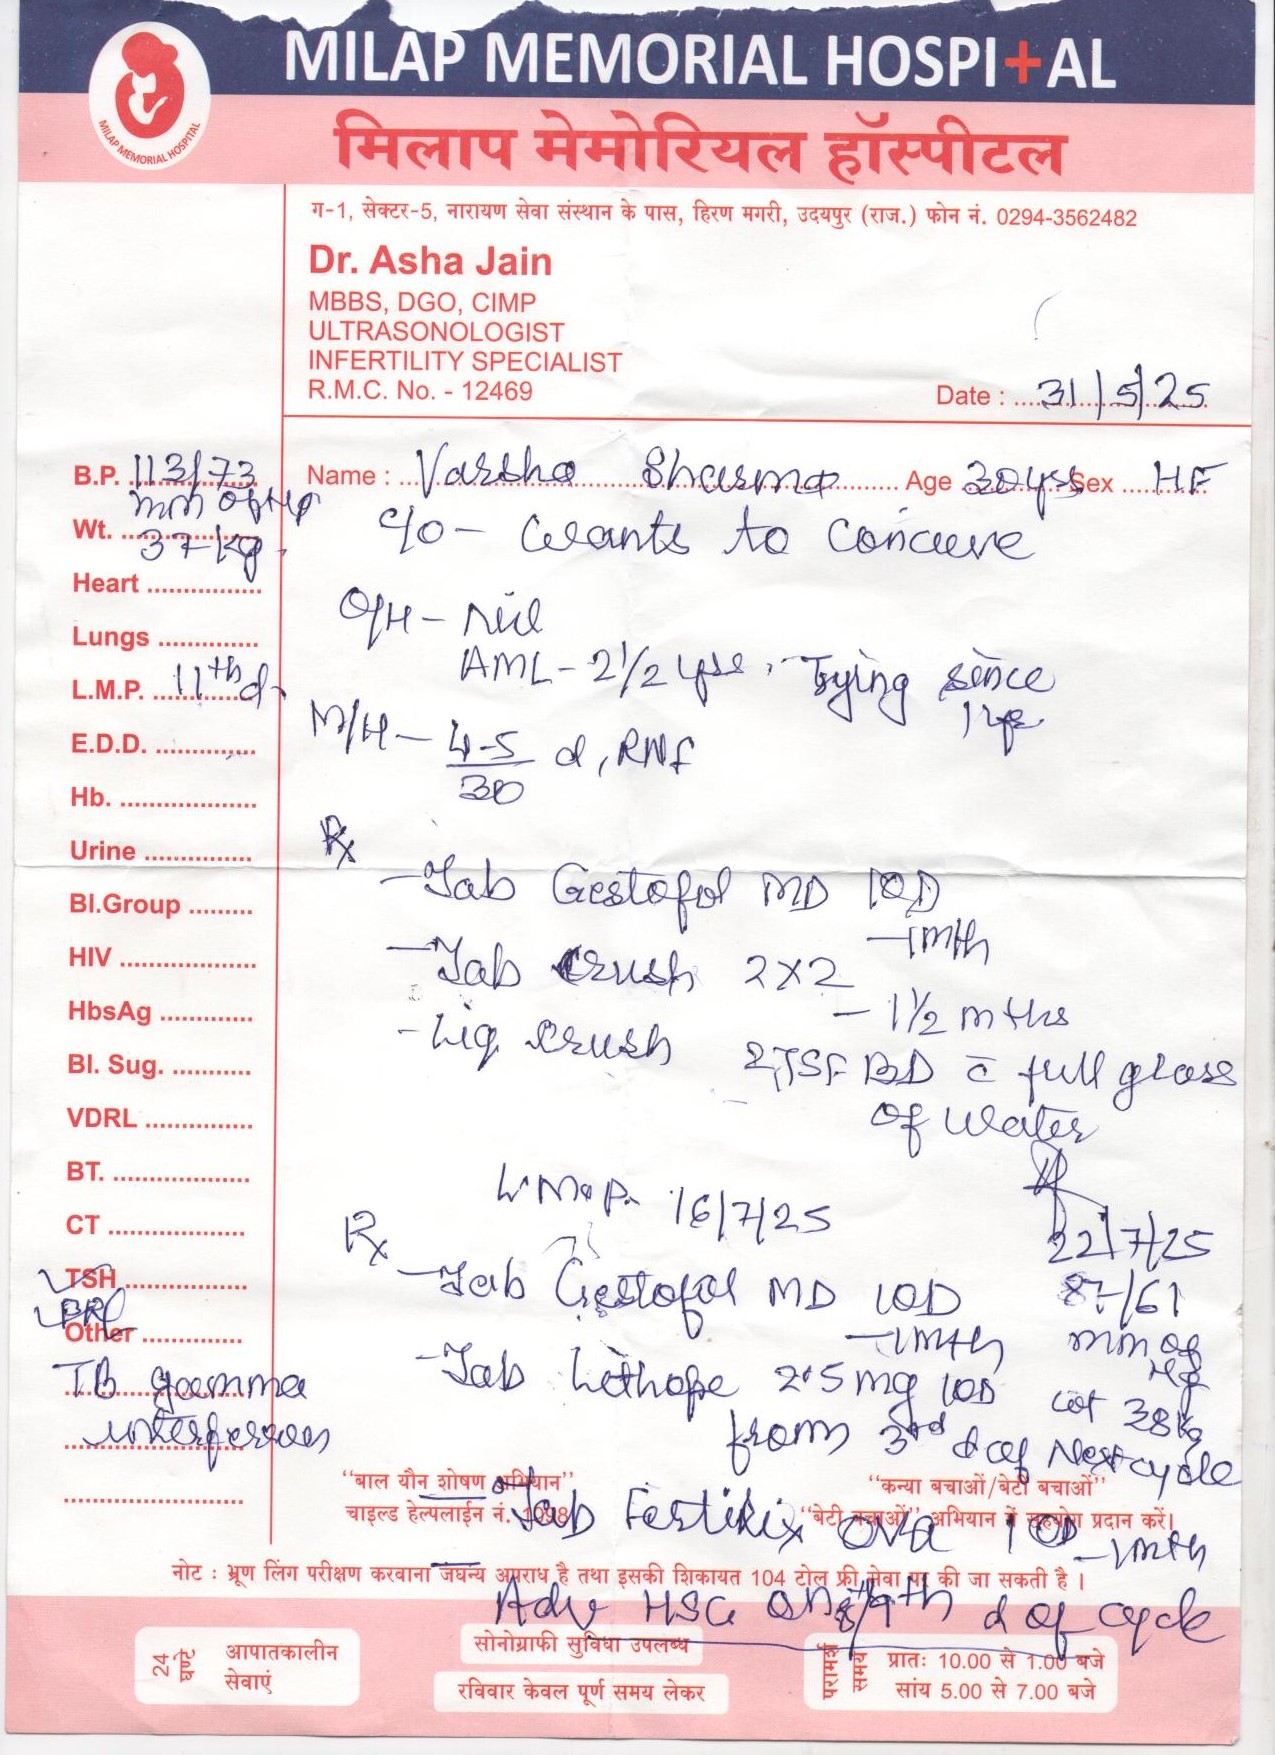 MILAP MEMORIAL HOSPITAL
MILAP MEMORIAL HOSPITAL
मिलाप मेमोरियल हॉस्पीटल
ग-1, सेक्टर-5, नारायण सेवा संस्थान के पास, हिरण मगरी, उदयपुर (राज.) फोन नं. 0294-3562482
Dr. Asha Jain
MBBS, DGO, CIMP
ULTRASONOLOGIST
INFERTILITY SPECIALIST
R.M.C. No. - 12469
Date : 31/5/25
B.P. 113/73
mm of Hg
Name : Varsha Sharma Age 30yrs Sex HF
Wt. 37kg
C/O - Wants to Conceive
Heart
O/H - Nil
Lungs
AML - 2 1/2 yrs, Trying since 1yr
L.M.P. 11th d
M/H - 4-5/30 d, RNF
E.D.D.
Hb.
Urine
Rx
- Tab Gestofol MD 1OD
- 1mth
Bl.Group
HIV
- Tab Crush 2x2
- 1 1/2 mths
HbsAg
- Liq Crush 2TSF BD c̄ full glass
of water
Bl. Sug.
VDRL
BT.
L.M.P. 16/7/25
CT
22/7/25
Rx
TSH
PRL
Other
TB gamma
interferron
- Tab Gestofol MD 1OD
- 1mth
87/61
mm of
Hg
wt 38kg
- Tab Lethope 2.5mg 1OD
from 3rd d of Next cycle
"बाल यौन शोषण अभियान"
चाइल्ड हेल्पलाईन नं. 1098
"कन्या बचाओं/बेटी बचाओं"
"बेटी बचाओं" अभियान में सहयोग प्रदान करें।
- Tab Fertilix Ova 1OD
- 1mth
नोट : भ्रूण लिंग परीक्षण करवाना जघन्य अपराध है तथा इसकी शिकायत 104 टोल फ्री सेवा पर की जा सकती है ।
Adv HSG on 8th/9th d of cycle
24 घण्टे
आपातकालीन
सेवाएं
सोनोग्राफी सुविधा उपलब्ध
रविवार केवल पूर्ण समय लेकर
परामर्श समय
प्रातः 10.00 से 1.00 बजे
सांय 5.00 से 7.00 बजे